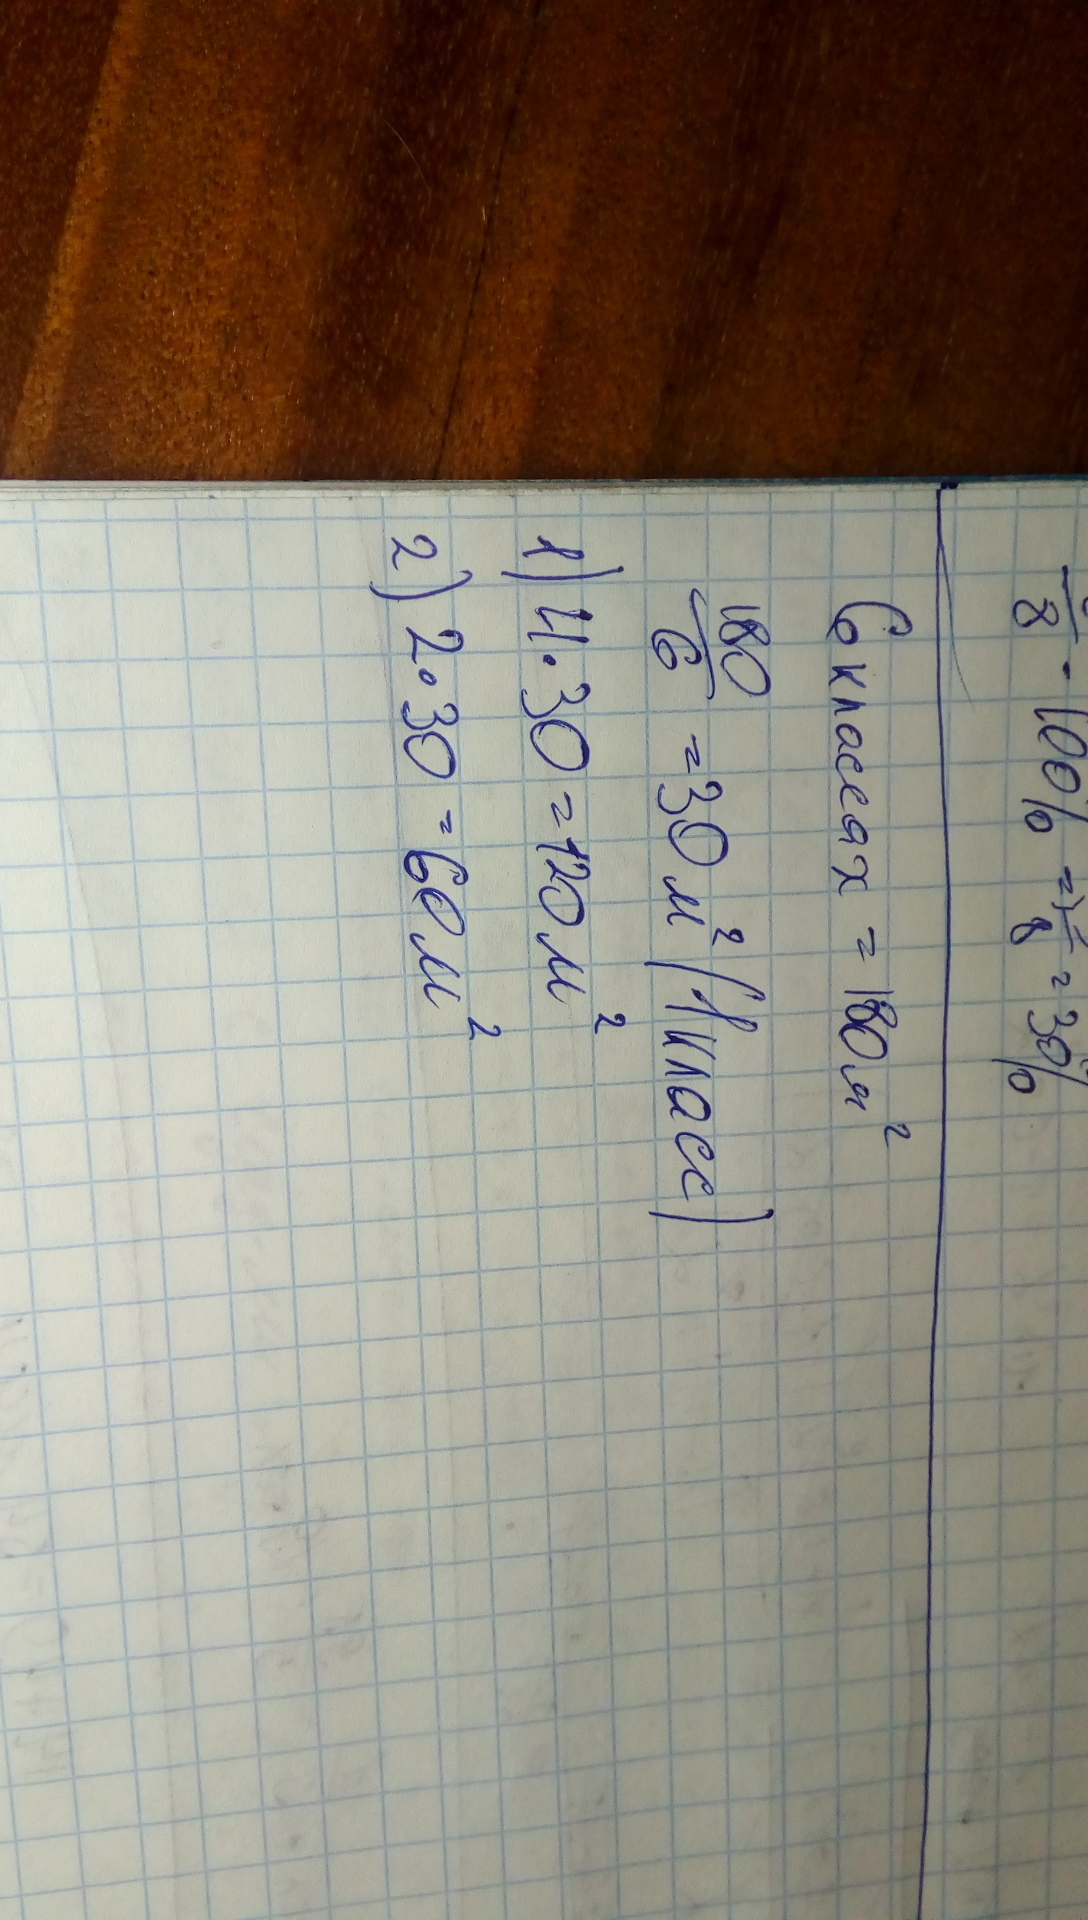 8 · 100% = 8 = 30%
6 классах = 180 м²
180/6 = 30 м² (1 класс)
1) 4·30 = 120 м²
2) 2·30 = 60 м²